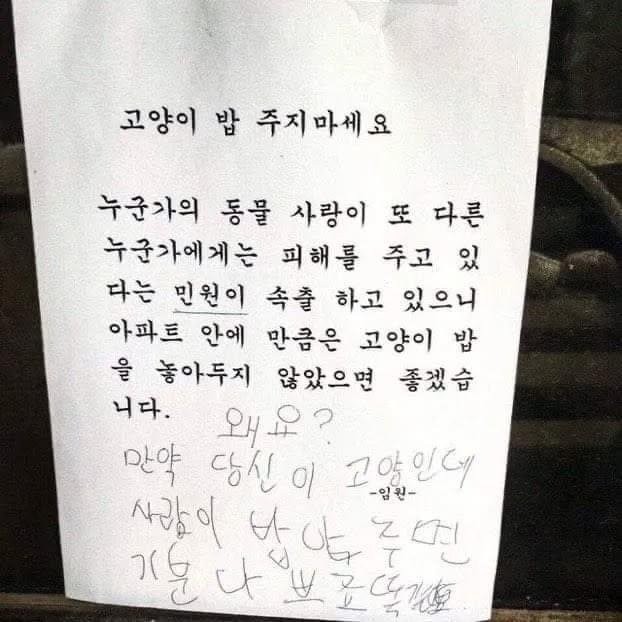 고양이 밥 주지마세요
누군가의 동물 사랑이 또 다른
누군가에게는 피해를 주고 있
다는 민원이 속출 하고 있으니
아파트 안에 만큼은 고양이 밥
을 놓아두지 않았으면 좋겠습
니다.
왜요?
만약 당신이 고양인데
-임원-
사람이 밥안주면
기분나쁘고 똑같